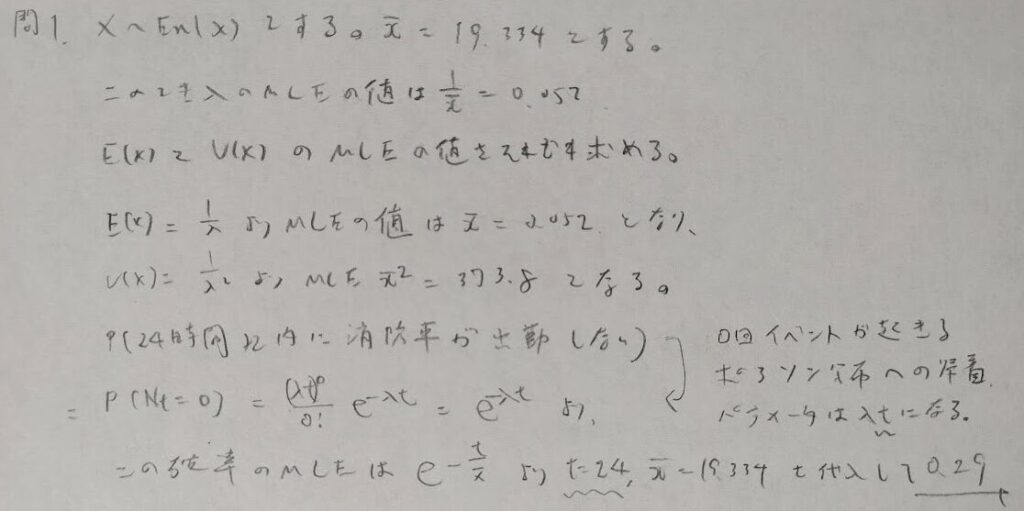 問1. X ~ En(x) とする。x̄ = 19.334 とする。
このときλのMLEの値は 1/x̄ = 0.052
E(x) と V(x) の MLE の値をそれぞれ求める。
E(x) = 1/λ より MLEの値は x̄ = 0.052. となり、
V(x) = 1/λ² より MLE x̄² = 373.8 となる。
P(24時間以内に消防車が出勤しない)
= P(Nt = 0) = (λt)⁰/0! e^{-λt} = e^{-λt} より、
0回イベントが起きる
ポアソン分布への帰着.
パラメータはλtになる。
この確率のMLEは e^{-t/x̄} より t=24, x̄=19.334 を代入して 0.29